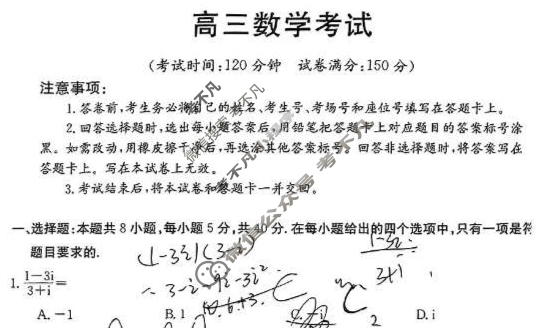 高三数学考试
(考试时间:120分钟 试卷满分:150分)
注意事项:
1.答卷前,考生务必将自己的姓名、考生号、考场号和座位号填写在答题卡上。
2.回答选择题时,选出每小题答案后,用铅笔把答题卡上对应题目的答案标号涂
黑。如需改动,用橡皮擦干净后,再选涂其他答案标号。回答非选择题时,将答案写在
答题卡上。写在本试卷上无效。
3.考试结束后,将本试卷和答题卡一并交回。
一、选择题:本题共8小题,每小题5分,共40分.在每小题给出的四个选项中,只有一项是符
题目要求的.
(1-3i)(3-i)
1-3i
3+i
1. \frac{1-3i}{3+i}=
3-i-9i-3i²
A.-1 B.1 C.-i D.i